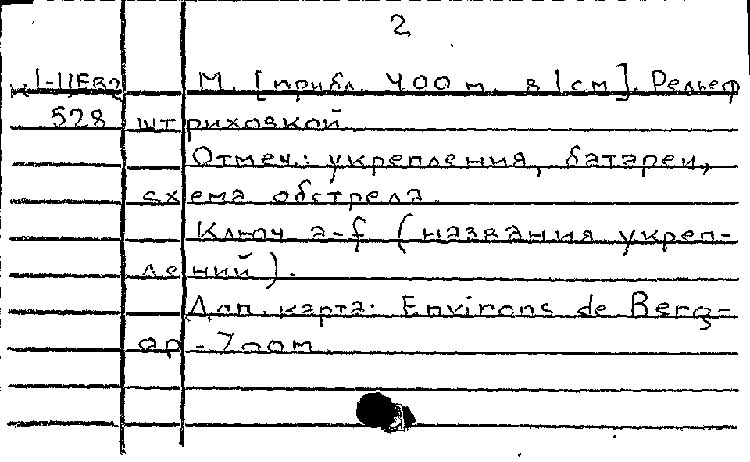 2
М. [прибл. 400 м. в 1 см]. Рельеф
528 штриховкой
Отмеч.: укрепления, батареи,
схема обстрела.
Ключ a-f (названия укреп-
лений).
Доп. карта: Environs de Berg-
op-Zoom